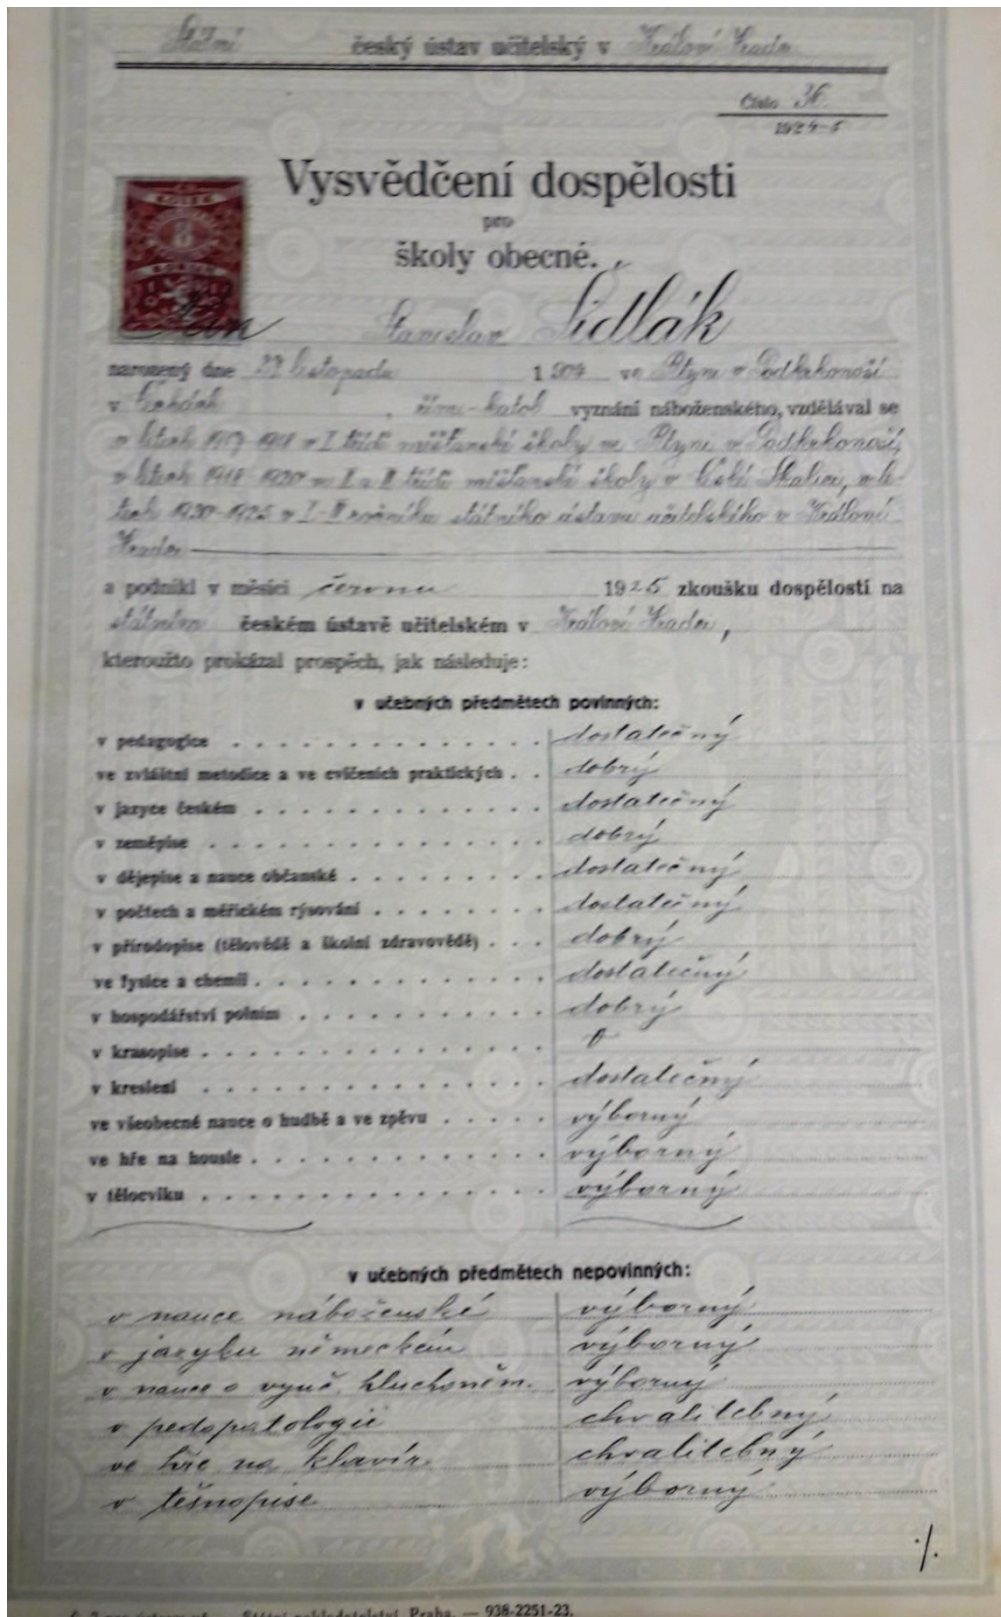 Státní český ústav učitelský v Králové Hradci
Číslo 36
1924-5
Vysvědčení dospělosti
pro
školy obecné.
KOLEK
8
KORUN
Stanislav Šidlák
narozený dne listopadu 1904 ve Rtyni v Podkrkonoší
v Čechách, řím.-katol. vyznání náboženského, vzdělával se
v letech 1917-1918 v I. třídě měšťanské školy ve Rtyni v Podkrkonoší,
v letech 1918-1920 v II. a III. třídě měšťanské školy v České Skalici, v le-
tech 1920-1925 v ročníku státního ústavu učitelského v Králové
Hradci
a podnikl v měsíci červnu 1925 zkoušku dospělosti na
státním českém ústavě učitelském v Králové Hradci,
kteroužto prokázal prospěch, jak následuje:
v učebných předmětech povinných:
v pedagogice dostatečný
ve zvláštní metodice a ve cvičeních praktických dobrý
v jazyce českém dostatečný
v zeměpise dobrý
v dějepise a nauce občanské dostatečný
v počtech a měřickém rýsování dostatečný
v přírodopise (tělovědě a školní zdravovědě) dobrý
ve fysice a chemii dostatečný
v hospodářství polním dobrý
v krasopise
v kreslení dostatečný
ve všeobecné nauce o hudbě a ve zpěvu výborný
ve hře na housle výborný
v tělocviku výborný
v učebných předmětech nepovinných:
v nauce náboženské výborný
v jazyku německém výborný
v nauce o vyuč. hluchoněm. výborný
v pedopatologii chvalitebný
ve hře na klavír chvalitebný
v těsnopise výborný
./.
Státní nakladatelství, Praha. — 938-2251-23.